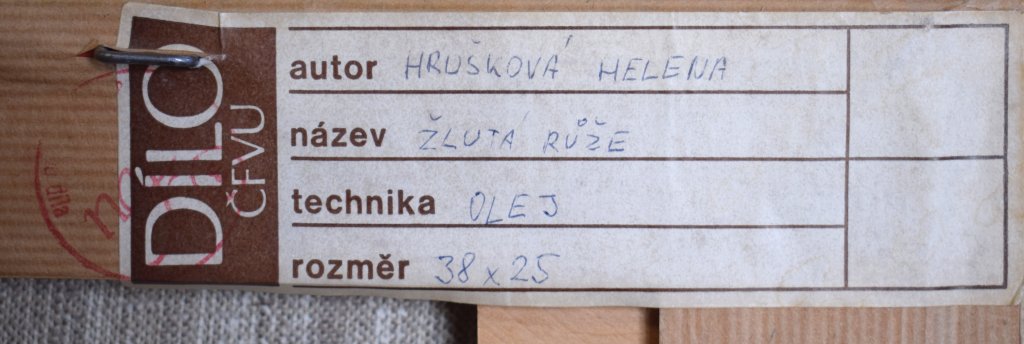 DÍLO
ČFVU
autor HRUŠKOVÁ HELENA
název ŽLUTÁ RŮŽE
technika OLEJ
rozměr 38 x 25